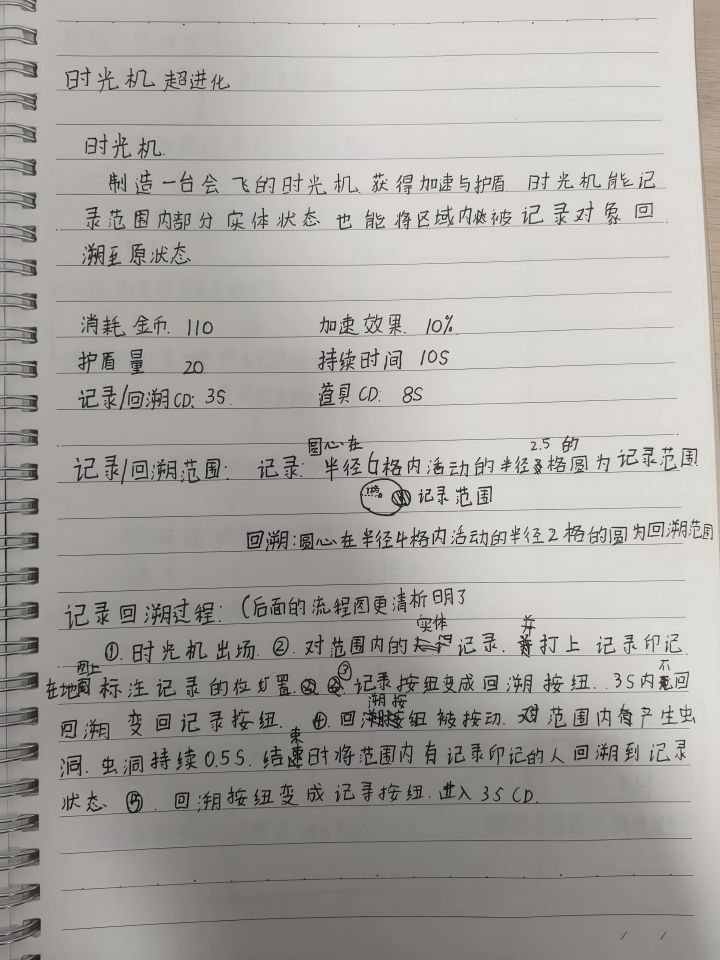 时光机 超进化
时光机
制造一台会飞的时光机. 获得加速与护盾 时光机能记
录范围内部分实体状态 也能将区域内被记录对象回
溯至原状态
消耗金币. 110 加速效果. 10%
护盾量 20 持续时间 10S
记录/回溯CD: 3S. 道具CD: 8S
记录/回溯范围: 记录: 圆心在半径6格内活动的半径2.5格的圆为记录范围
记录范围
回溯:圆心在半径4格内活动的半径2格的圆为回溯范围
记录回溯过程: (后面的流程图更清析明了
①. 时光机出场. ②. 对范围内的实体记录. 并打上 记录印记.
在地图上标注记录的位置. ③记录按纽变成回溯按纽. 3S内不回
回溯 变回记录按纽. ④. 回溯按纽被按动. 对范围内产生虫
洞. 虫洞持续0.5S. 结束时将范围内有记录印记的人回溯到记录
状态 ⑤. 回溯按纽变成记录按纽. 进入3S CD.